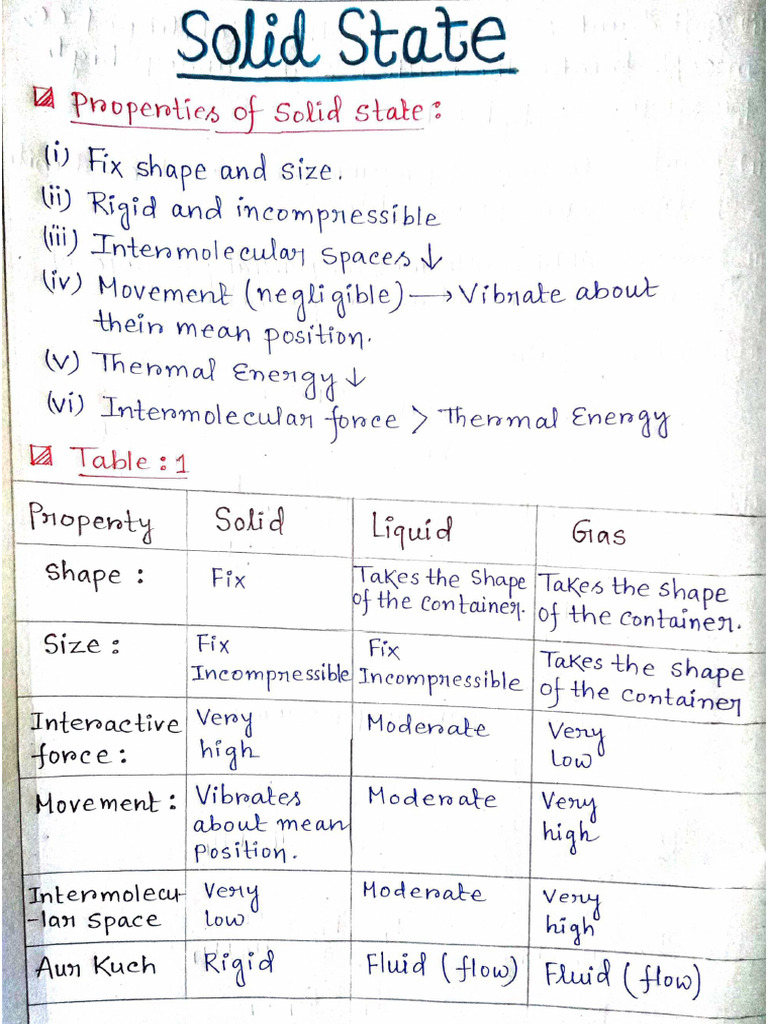 Solid State
Properties of Solid State:
(i) Fix shape and size.
(ii) Rigid and incompressible
(iii) Intermolecular spaces ↓
(iv) Movement (negligible) → Vibrate about
their mean position.
(v) Thermal Energy ↓
(vi) Intermolecular force > Thermal Energy
Table: 1
Property Solid Liquid Gas
Shape: Fix Takes the Shape Takes the shape
of the container. of the container.
Size: Fix Fix Takes the shape
Incompressible Incompressible of the container
Interactive Very Moderate Very
force: high Low
Movement: Vibrates Moderate Very
about mean high
position.
Intermolecu- Very Moderate Very
-lar space Low high
Aur Kuch Rigid Fluid (flow) Fluid (flow)